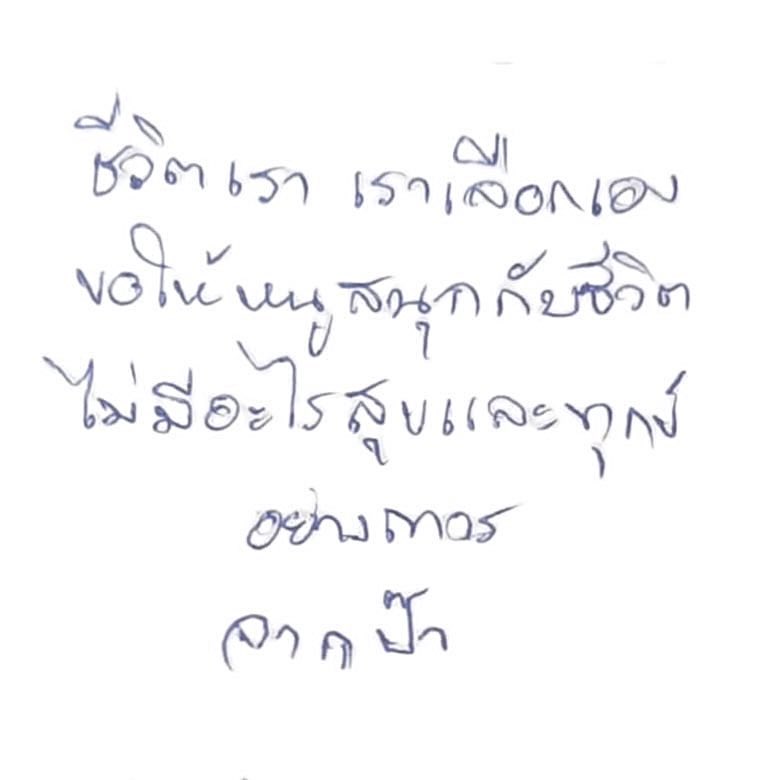 ชีวิตเรา เราเลือกเอง
ขอให้หนูสนุกกับชีวิต
ไม่มีอะไรสุขและทุกข์
อย่างถาวร
จากป๊า